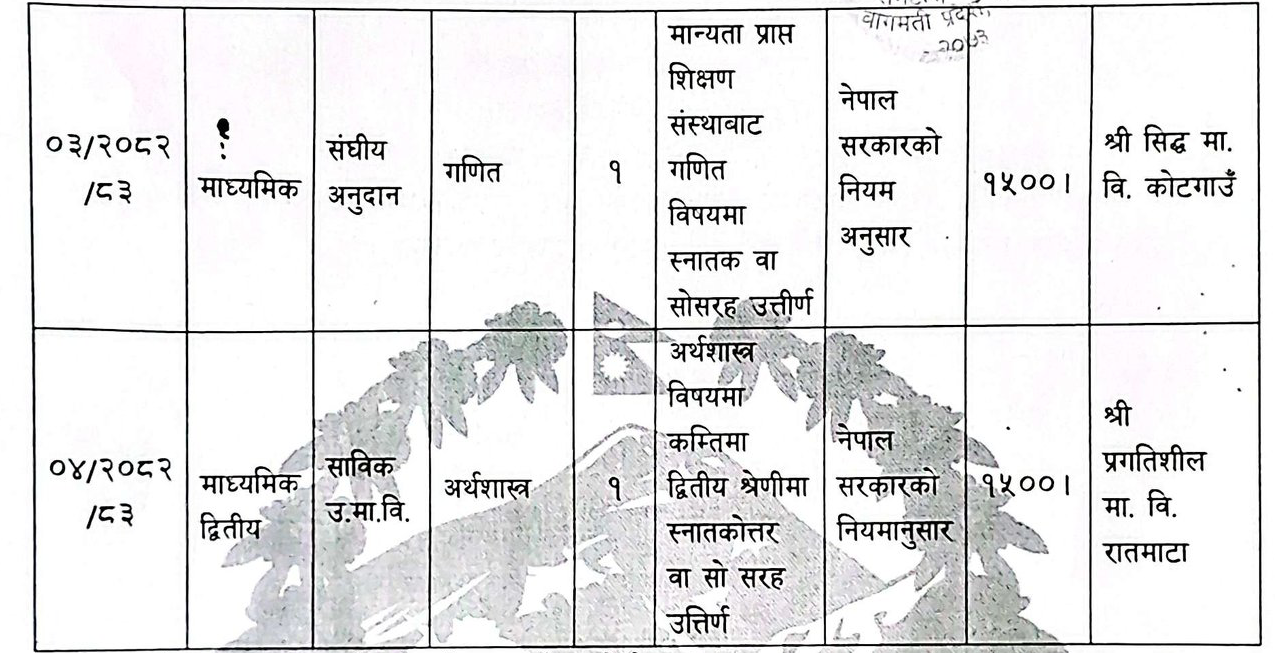 वागमती प्रदेश,
२०७३
०३/२०८२
/८३
माध्यमिक
संघीय
अनुदान
गणित
१
मान्यता प्राप्त
शिक्षण
संस्थावाट
गणित
विषयमा
स्नातक वा
सोसरह उत्तीर्ण
नेपाल
सरकारको
नियम
अनुसार
१५००।
श्री सिद्ध मा.
वि. कोटगाउँ
०४/२०८२
/८३
माध्यमिक
द्वितीय
साविक
उ.मा.वि.
अर्थशास्त्र
१
अर्थशास्त्र
विषयमा
कम्तिमा
द्वितीय श्रेणीमा
स्नातकोत्तर
वा सो सरह
उत्तिर्ण
नेपाल
सरकारको
नियमानुसार
१५००।
श्री
प्रगतिशील
मा. वि.
रातमाटा